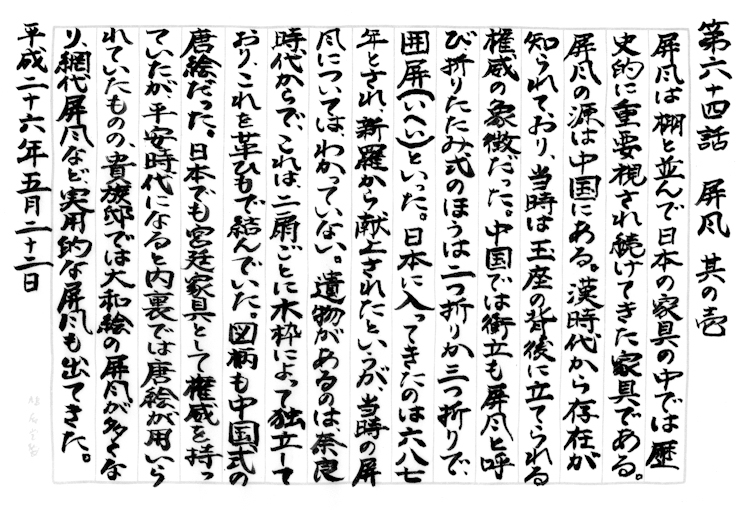 第六十四話　屏風　其の壱
屏風は棚と並んで日本の家具の中では歴
史的に重要視され続けてきた家具である。
屏風の源は中国にある。漢時代から存在が
知られており、当時は玉座の背後に立てられる
権威の象徴だった。中国では衝立も屏風と呼
び折りたたみ式のほうは二つ折りか三つ折りで、
囲屏(いへい)といった。日本に入ってきたのは六八七
年とされ、新羅から献上されたというが、当時の屏
風については、わかっていない。遺物があるのは、奈良
時代からで、これは、二扇ごとに木枠によって独立して
おり、これを革ひもで結んでいた。図柄も中国式の
唐絵だった。日本でも宮廷家具として権威を持っ
ていたが、平安時代になると内裏では唐絵が用いら
れていたものの、貴族邸では大和絵の屏風が多くな
り、網代屏風など実用的な屏風も出てきた。
平成二十六年五月二十二日